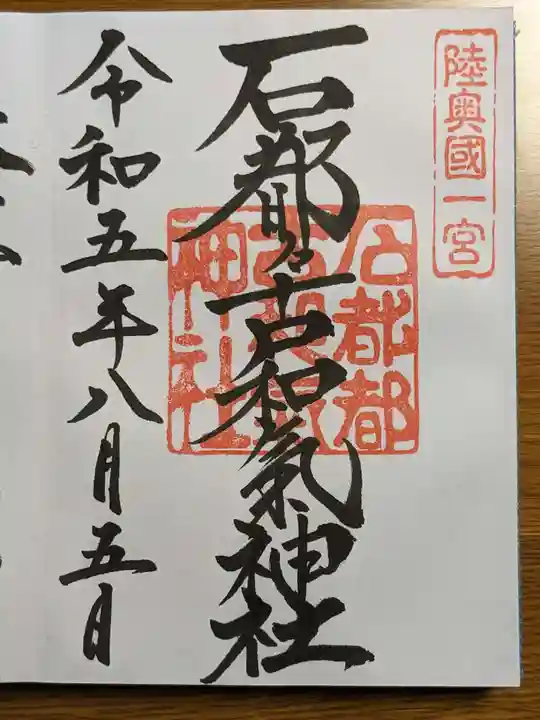 陸奥國一宮
石都々古和氣神社
石都都古和氣神社
令和五年八月五日